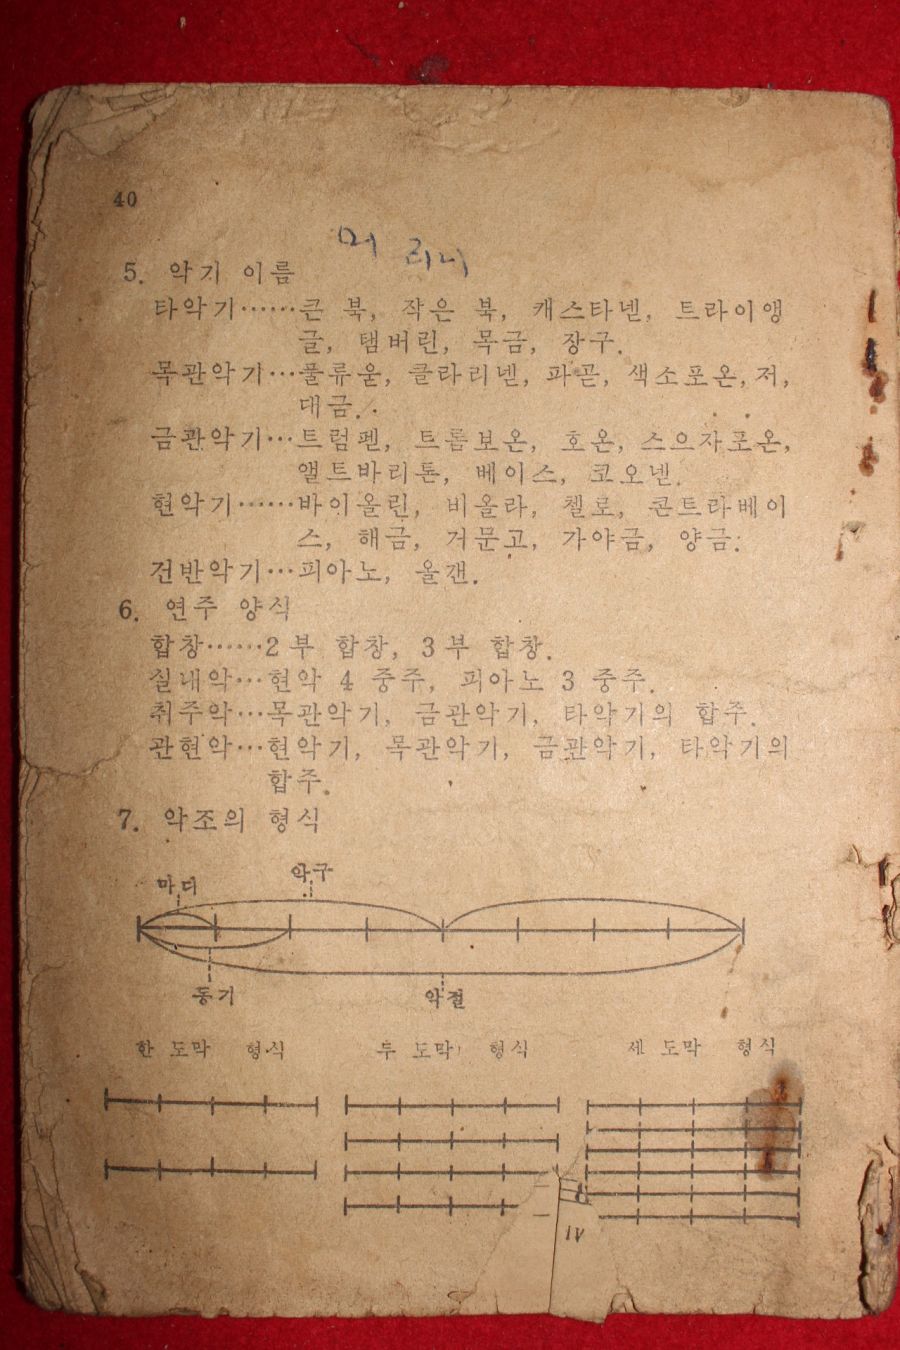 40
머 리 니
5. 악기 이름
타악기……큰 북, 작은 북, 캐스타넽, 트라이앵
글, 탬버린, 목금, 장구.
목관악기…풀류웉, 클라리넽, 파곧, 색소포온, 저,
대금.
금관악기…트럼펟, 트롬보온, 호온, 스으자포온,
앨트바리톤, 베이스, 코오넽.
현악기……바이올린, 비올라, 첼로, 콘트라베이
스, 해금, 거문고, 가야금, 양금.
건반악기…피아노, 올갠.
6. 연주 양식
합창……2 부 합창, 3 부 합창.
실내악…현악 4 중주, 피아노 3 중주.
취주악…목관악기, 금관악기, 타악기의 합주.
관현악…현악기, 목관악기, 금관악기, 타악기의
합주.
7. 악조의 형식
마디 악구
동기 악절
한 도막 형식 두 도막 형식 세 도막 형식